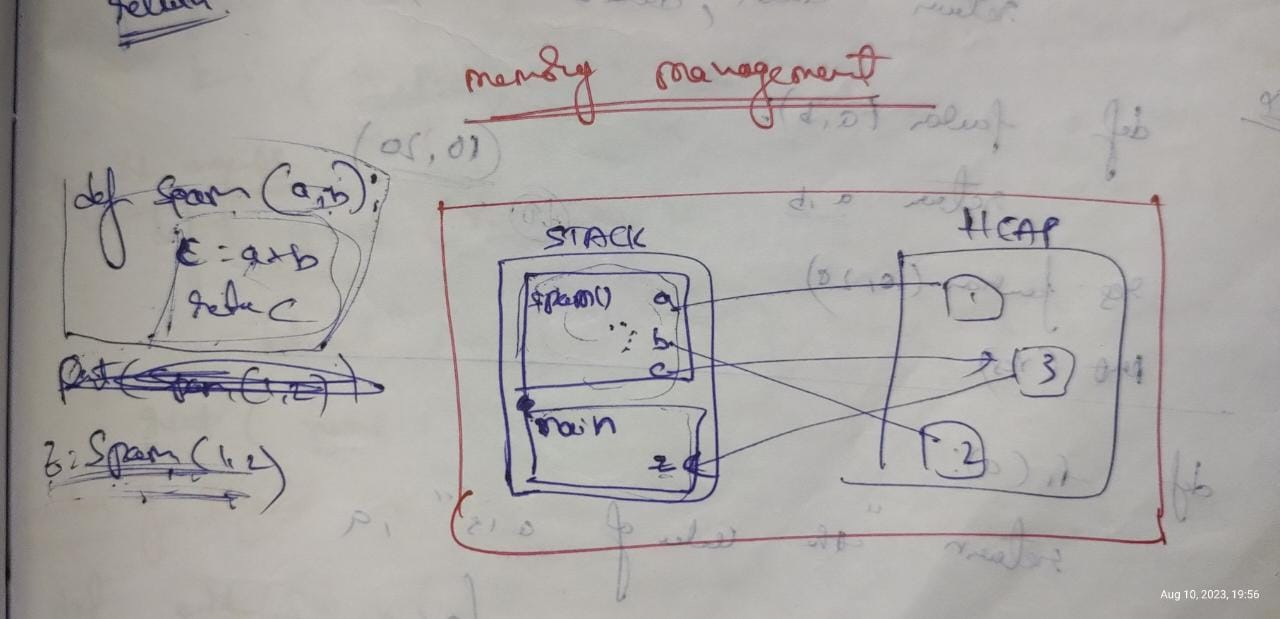 return
memory management
def spam(a,b):
c = a+b
return c
z = spam(1,2)
STACK
spam() a
b
c
main
z
HEAP
1
3
2
Aug 10, 2023, 19:56